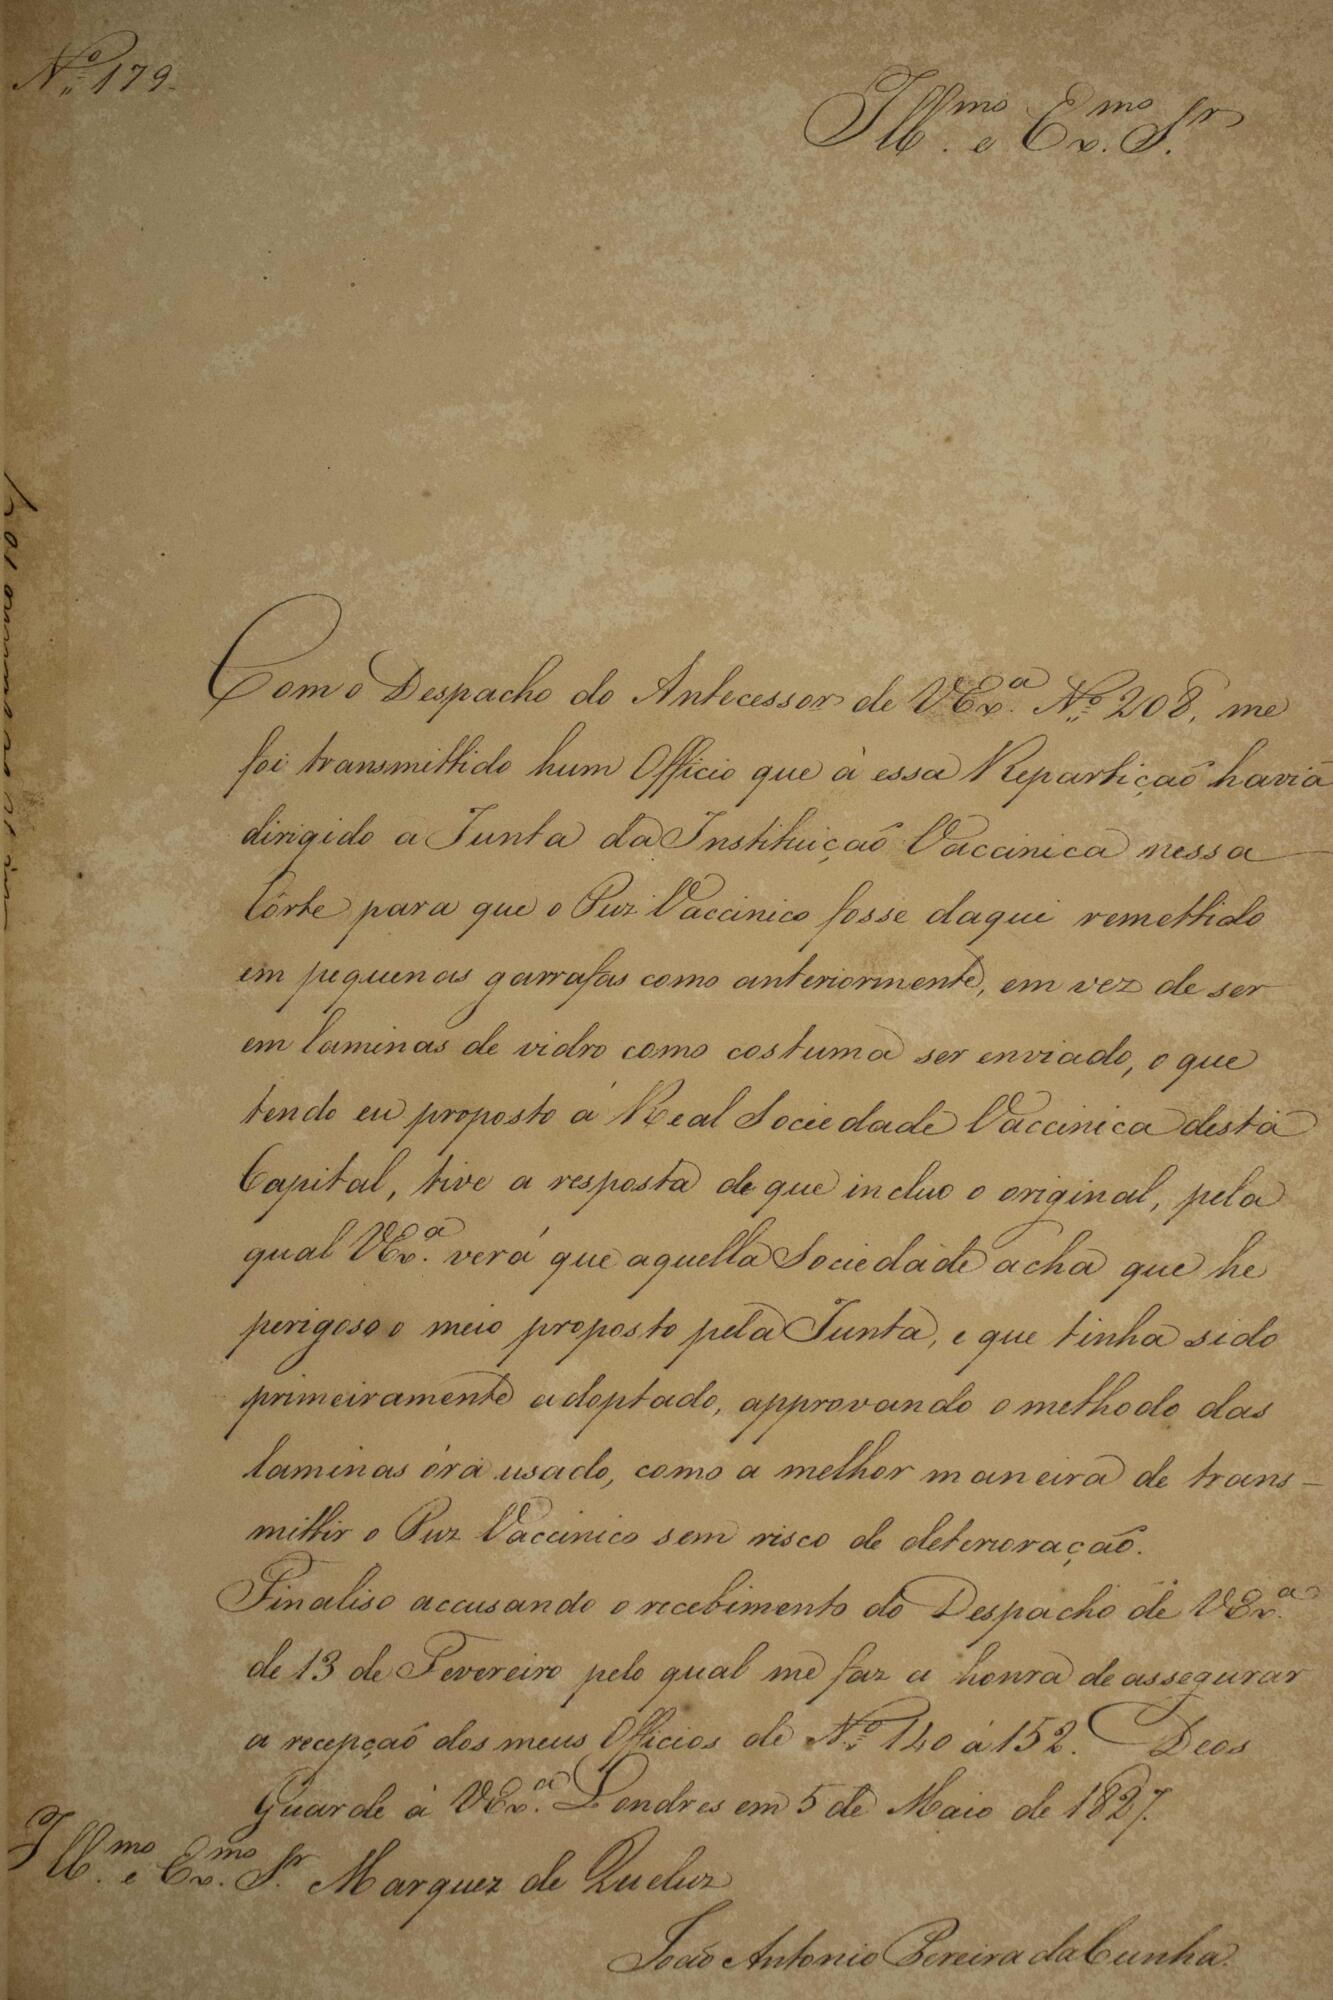 Nº 179.
Illmo. e Exmo. Sr.
Com o Despacho do Antecessor de VExa. Nº 208, me
foi transmittido hum Officio que à essa Repartiçaõ havia
dirigido a Junta da Instituiçaõ Vaccinica nessa
Côrte para que o Puz Vaccinico fosse daqui remettido
em pequenas garrafas como anteriormente, em vez de ser
em laminas de vidro como costuma ser enviado, o que
tendo eu proposto á Real Sociedade Vaccinica desta
Capital, tive a resposta de que incluo o original, pela
qual VExa. verá que aquella Sociedade acha que he
perigoso o meio proposto pela Junta, e que tinha sido
primeiramente adoptado, approvando o methodo das
laminas óra usado, como a melhor maneira de trans-
mittir o Puz Vaccinico sem risco de deterioraçaõ.
Finaliso accusando o recebimento do Despacho de VExa.
de 13 de Fevereiro pelo qual me faz a honra de assegurar
a recepçaõ dos meus Officios de Nº 140 á 152. Deos
Guarde à VExa. Londres em 5 de Maio de 1827.
Illmo. e Exmo. Sr. Marquez de Queluz
João Antonio Pereira da Cunha.